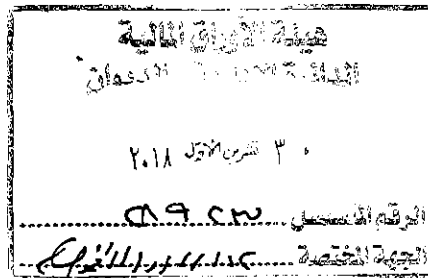 هيئة الأوراق المالية
الدائرة الإدارية الديوان
٣٠ تشرين الأول ٢٠١٨
الرقم المتسلسل
الجهة المختصة